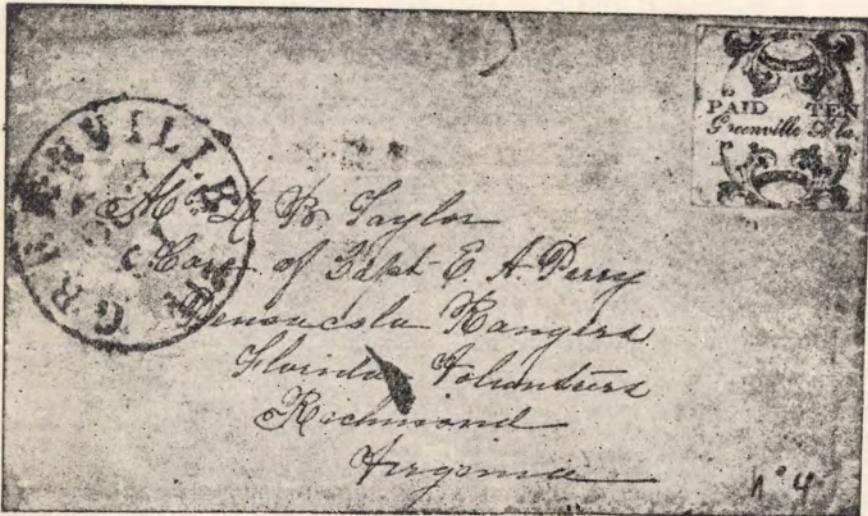 PAID TEN
Greenville Ala
GREENVILLE
Mr B. Taylor
Care of Capt E. A. Perry
Pensacola Rangers
Florida Volunteers
Richmond
Virginia
No 4